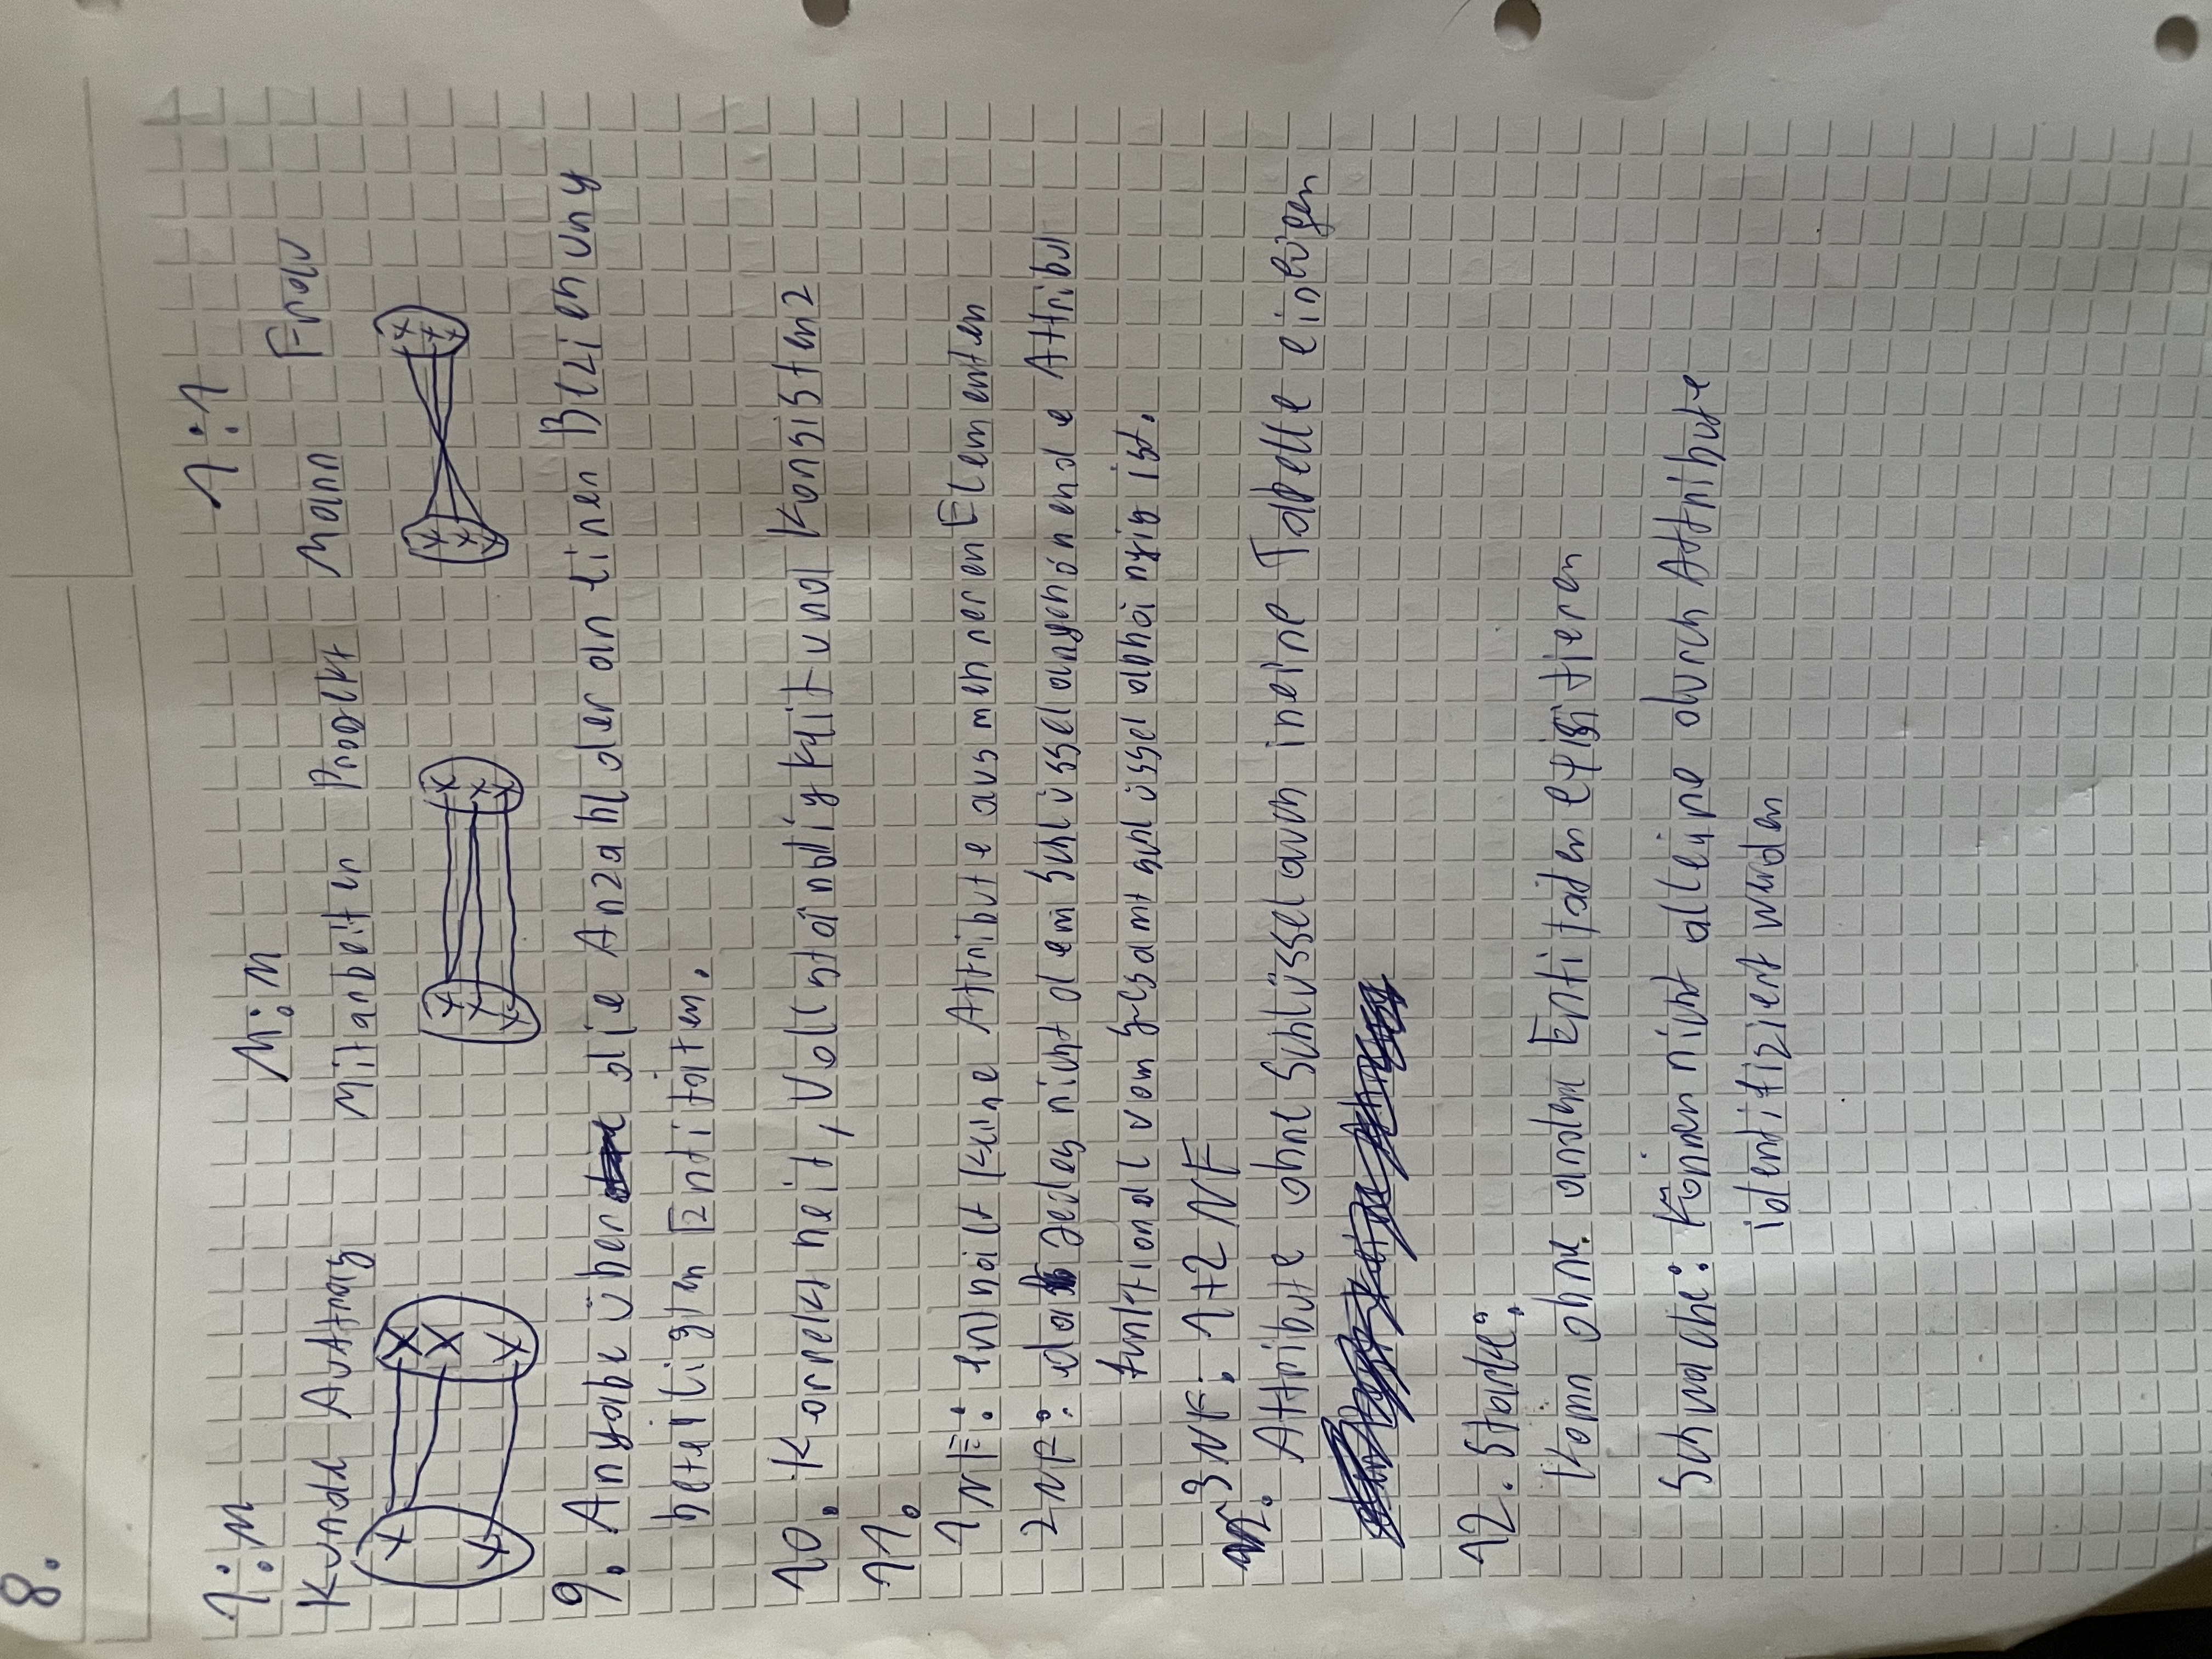 8.
1:M M:M 1:1
Kunde Auftrag Mitarbeiter Projekt Mann Frau
9. Angabe über die Anzahl der an einen Beziehung
beteiligten Entitäten.
10. Korrektheit, Vollständigkeit und Konsistenz
11.
1NF: enthält keine Attribute aus mehreren Elementen
2NF: daß jedes nicht dem Schlüssel angehörende Attribut
funktional vom Gesamtschlüssel abhängig ist.
3NF: 1+2 NF
Attribute ohne Schlüssel auch in eine Tabelle
12. Starke:
Kann ohne andere Entitäten existieren
Schwache: Können nicht alleine durch Attribute
identifiziert werden